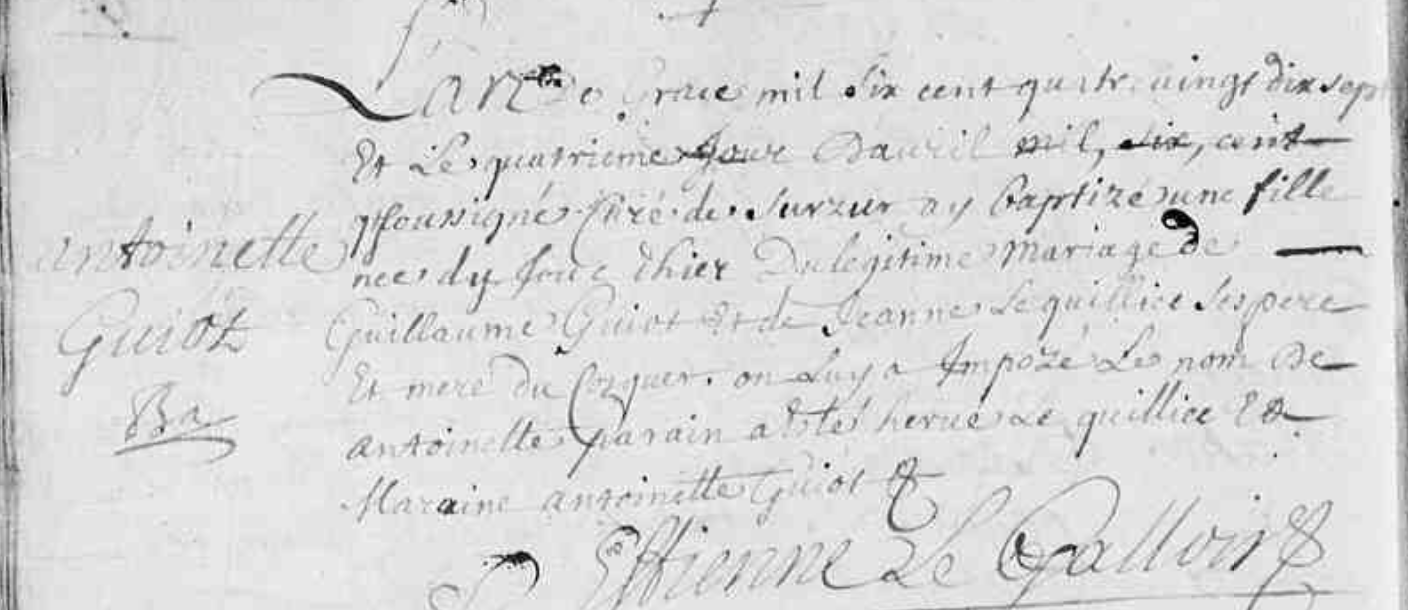 L'an de Grace mil six cent quatre vingt dix sept
Et Le quatrieme Jour Davril mil, six, cent
soussigné Curé de Surzur ay Baptizé une fille
nee dy Jour d'hier Du legitime Mariage de
antoinette
Guillaume Guiot Et de Jeanne Le quillice ses pere
Guiot
Et mere du Cozquer. on Luy a Impozé Le nom De
Ba
antoinette parain a esté herve Le quillice Et
Maraine antoinette Guiot &
Estienne Le Galloir